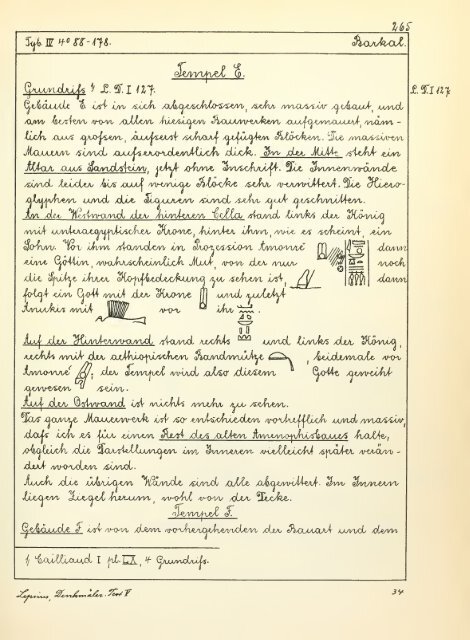 265
Tgb. IV 4° 88-178. Barkal.
Tempel E.
Grundriſs ¹) L. D. I 127. L. D. I 127
Gebäude E ist in sich abgeschlossen, sehr massiv gebaut, und
am besten von allen hiesigen Bauwerken aufgemauert, näm-
lich aus groſsen, äuſserst scharf gefügten Blöcken. Die massiven
Mauern sind auſserordentlich dick. In der Mitte steht ein
Altar aus Sandstein, jetzt ohne Inschrift. Die Innenwände
sind leider bis auf wenige Blöcke sehr verwittert. Die Hiero-
glyphen und die Figuren sind sehr gut geschnitten.
An der Westwand der hinteren Cella stand links der König
mit unteraegyptischer Krone, hinter ihm, wie es scheint, ein
Sohn. Vor ihm standen in Prozession Amonrē dann
eine Göttin, wahrscheinlich Mut, von der nur noch
die Spitze ihrer Kopfbedeckung zu sehen ist, dann
folgt ein Gott mit der Krone und zuletzt
Anukis mit vor ihr .
Auf der Hinterwand stand rechts und links der König,
rechts mit der aethiopischen Bandmütze , beidemale vor
Amonrē ; der Tempel wird also diesem Gotte geweiht
gewesen sein.
Auf der Ostwand ist nichts mehr zu sehen.
Das ganze Mauerwerk ist so entschieden vortrefflich und massiv,
daſs ich es für einen Rest des alten Amenophisbaues halte,
obgleich die Darstellungen im Inneren vielleicht später verän-
dert worden sind.
Auch die übrigen Wände sind alle abgewittert. Im Innern
liegen Ziegel herum, wohl von der Decke.
Tempel F.
Gebäude F ist von dem vorhergehenden der Bauart und dem
¹) Cailliaud I pl. LX, 4 Grundriſs.
Lepsius, Denkmäler. Text V 34